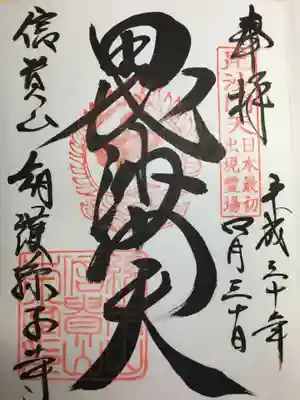 奉拝
平成三十年
四月三十日
毘沙門天
日本最初
出現霊場
信貴山
朝護孫子寺